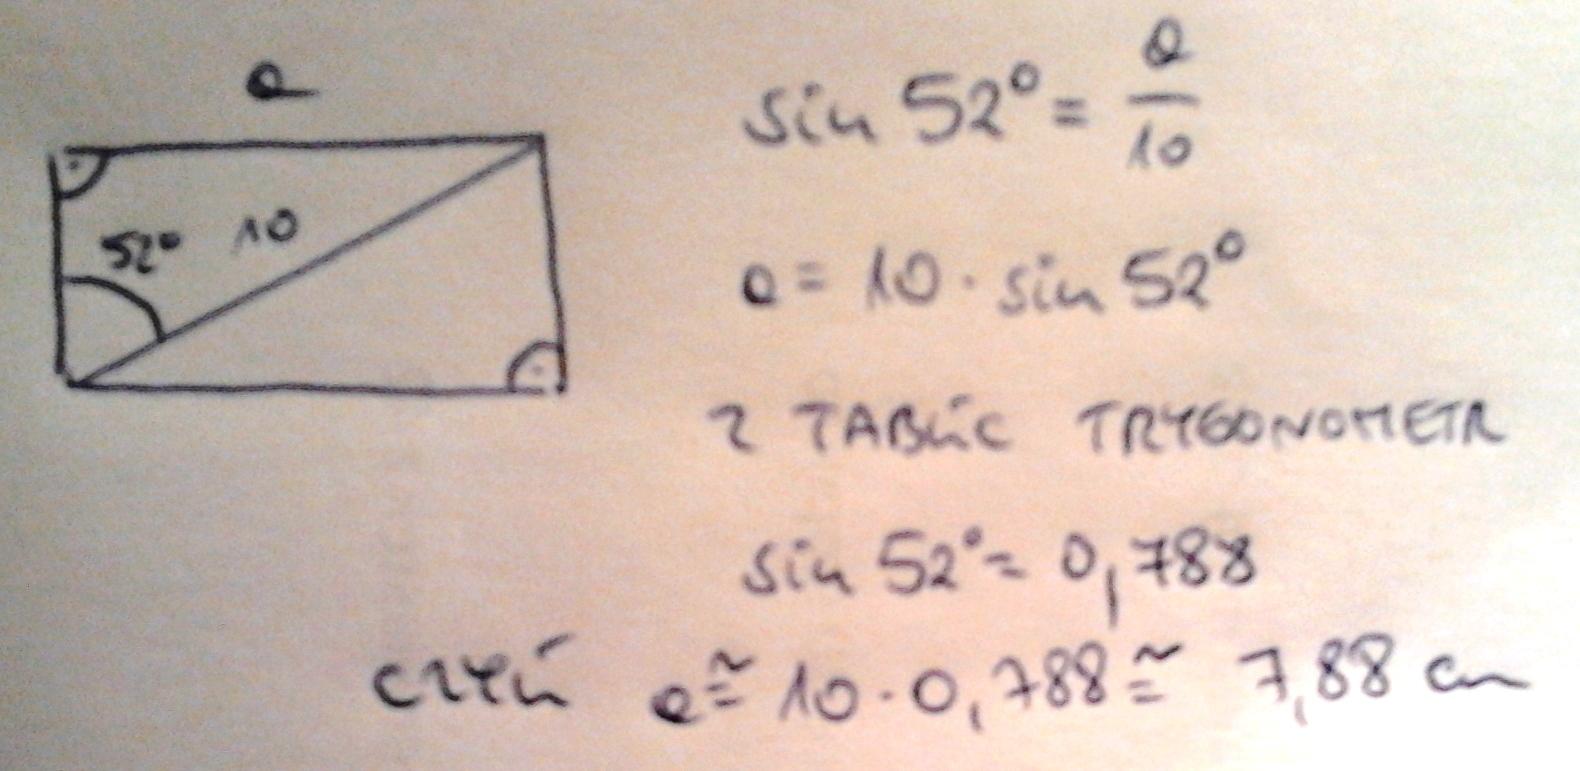 a
52° 10
sin 52° = a/10
a = 10 · sin 52°
Z TABLIC TRYGONOMETR
sin 52° = 0,788
CZYLI a ≅ 10 · 0,788 ≅ 7,88 cm